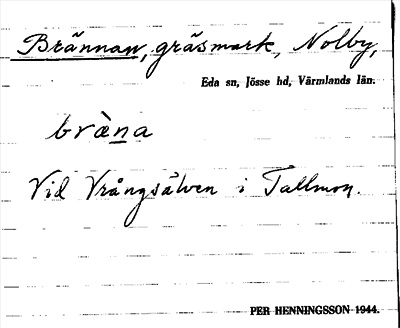 Brännan, gräsmark, Nolby,
Eda sn, Jösse hd, Värmlands län.
bràṉa
Vid Vrångsälven i Tallmon.
PER HENNINGSSON 1944.